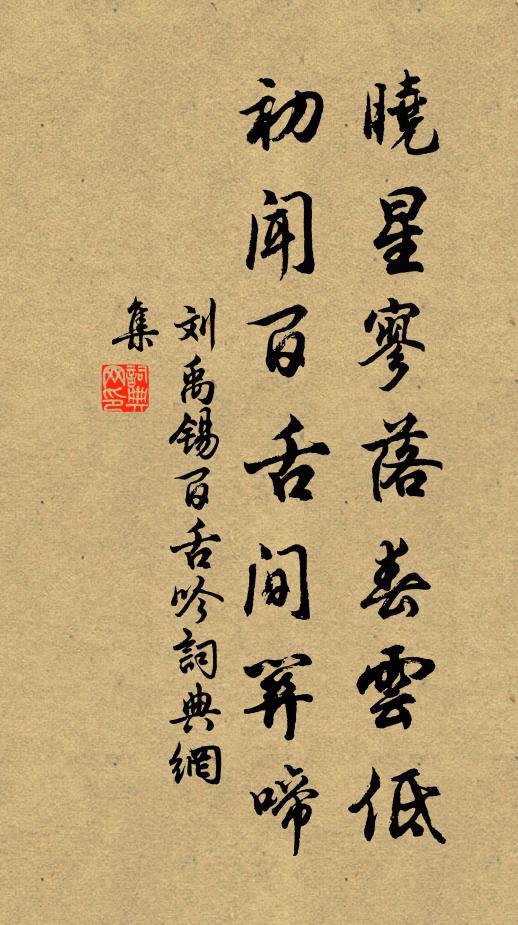 曉星寥落春雲低
初聞百舌間關啼
刘禹锡百舌吟詞典網
集
詞典网印